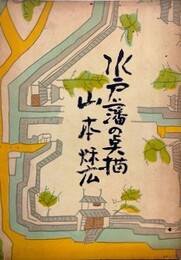 水戸藩の点描
山本秋広